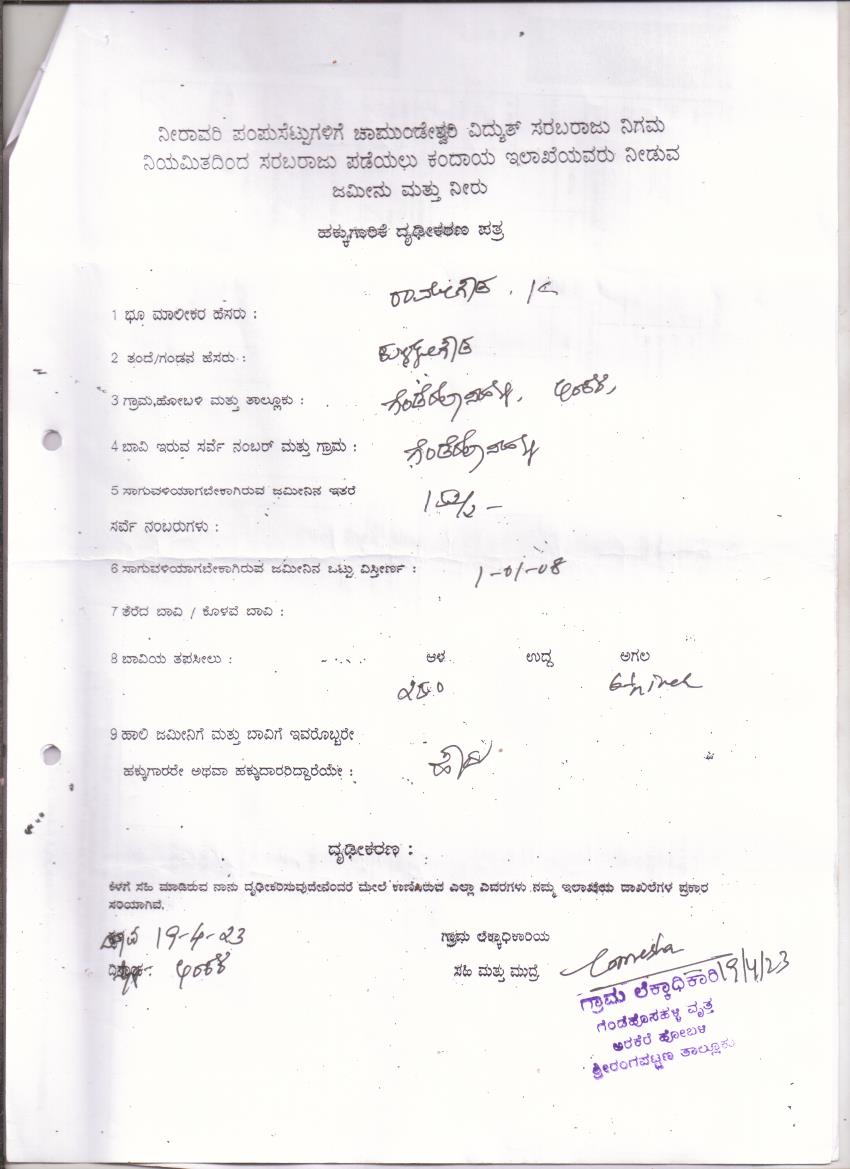 ನೀರಾವರಿ ಪಂಪುಸೆಟ್ಟುಗಳಿಗೆ ಚಾಮುಂಡೇಶ್ವರಿ ವಿದ್ಯುತ್ ಸರಬರಾಜು ನಿಗಮ
ನಿಯಮಿತದಿಂದ ಸರಬರಾಜು ಪಡೆಯಲು ಕಂದಾಯ ಇಲಾಖೆಯವರು ನೀಡುವ
ಜಮೀನು ಮತ್ತು ನೀರು
ಹಕ್ಕುಗಾರಿಕೆ ದೃಢೀಕರಣ ಪತ್ರ
1 ಭೂ ಮಾಲೀಕರ ಹೆಸರು : ರಾಮೇಗೌಡ
2 ತಂದೆ/ಗಂಡನ ಹೆಸರು : ಕುಳ್ಳೇಗೌಡ
3 ಗ್ರಾಮ,ಹೋಬಳಿ ಮತ್ತು ತಾಲ್ಲೂಕು : ಗೆಂಡೆಹೊಸಹಳ್ಳಿ, ಅರಕೆರೆ,
4 ಬಾವಿ ಇರುವ ಸರ್ವೆ ನಂಬರ್ ಮತ್ತು ಗ್ರಾಮ : ಗೆಂಡೆಹೊಸಹಳ್ಳಿ
5 ಸಾಗುವಳಿಯಾಗಬೇಕಾಗಿರುವ ಜಮೀನಿನ ಇತರೆ
ಸರ್ವೆ ನಂಬರುಗಳು :
6 ಸಾಗುವಳಿಯಾಗಬೇಕಾಗಿರುವ ಜಮೀನಿನ ಒಟ್ಟು ವಿಸ್ತೀರ್ಣ : 1-01-08
7 ತೆರೆದ ಬಾವಿ / ಕೊಳವೆ ಬಾವಿ :
8 ಬಾವಿಯ ತಪಸೀಲು : ಆಳ ಉದ್ದ ಅಗಲ
9 ಹಾಲಿ ಜಮೀನಿಗೆ ಮತ್ತು ಬಾವಿಗೆ ಇವರೊಬ್ಬರೇ
ಹಕ್ಕುಗಾರರೇ ಅಥವಾ ಹಕ್ಕುದಾರರಿದ್ದಾರೆಯೇ : ಹೌದು
ದೃಢೀಕರಣ :
ಕೆಳಗೆ ಸಹಿ ಮಾಡಿರುವ ನಾನು ದೃಢೀಕರಿಸುವುದೇನೆಂದರೆ ಮೇಲೆ ಕಾಣಿಸಿರುವ ಎಲ್ಲಾ ವಿವರಗಳು ನಮ್ಮ ಇಲಾಖೆಯ ದಾಖಲೆಗಳ ಪ್ರಕಾರ
ಸರಿಯಾಗಿವೆ.
19-4-23 ಗ್ರಾಮ ಲೆಕ್ಕಾಧಿಕಾರಿಯ
ಅರಕೆರೆ ಸಹಿ ಮತ್ತು ಮುದ್ರೆ
19/4/23
ಗ್ರಾಮ ಲೆಕ್ಕಾಧಿಕಾರಿ
ಗೆಂಡೆಹೊಸಹಳ್ಳಿ ವೃತ್ತ
ಅರಕೆರೆ ಹೋಬಳಿ
ಶ್ರೀರಂಗಪಟ್ಟಣ ತಾಲ್ಲೂಕು